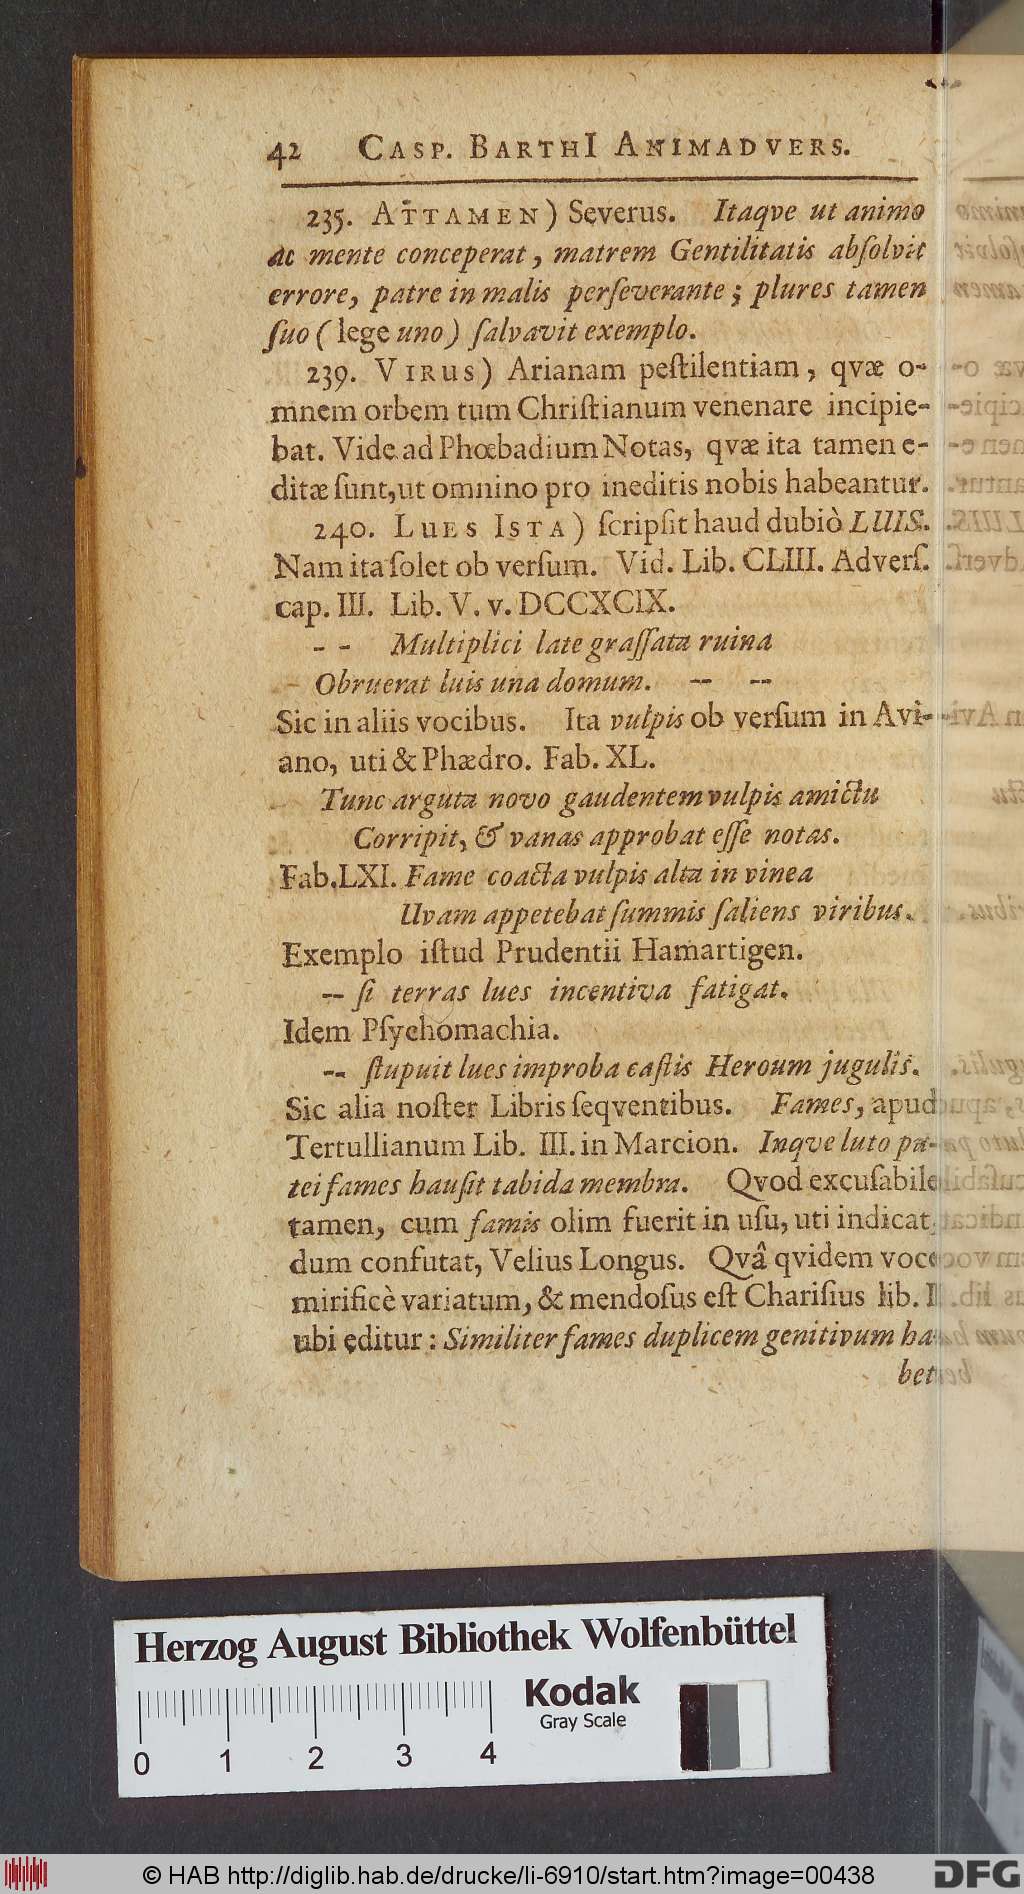 42 CASP. BARTHI ANIMADVERS.
235. ATTAMEN) Severus. Itaqve ut animo
ac mente conceperat, matrem Gentilitatis abſolvit
errore, patre in malis perſeverante; plures tamen
ſuo (lege uno) ſalvavit exemplo.
239. VIRUS) Arianam peſtilentiam, qvæ o-
mnem orbem tum Chriſtianum venenare incipie-
bat. Vide ad Phœbadium Notas, qvæ ita tamen e-
ditæ ſunt, ut omnino pro ineditis nobis habeantur.
240. LUES ISTA) ſcripſit haud dubiò LUIS.
Nam ita ſolet ob verſum. Vid. Lib. CLIII. Adverſ.
cap. III. Lib. V. v. DCCXCIX.
- - Multiplici late graſſata ruina
- Obruerat luis una domum. -- --
Sic in aliis vocibus. Ita vulpis ob verſum in Avi-
ano, uti & Phædro. Fab. XL.
Tunc arguta novo gaudentem vulpis amictu
Corripit, & vanas approbat eſſe notas.
Fab. LXI. Fame coacta vulpis alta in vinea
Uvam appetebat ſummis ſaliens viribus.
Exemplo iſtud Prudentii Hamartigen.
-- ſi terras lues incentiva fatigat.
Idem Pſychomachia.
-- ſtupuit lues improba caſtis Heroum jugulis.
Sic alia noſter Libris ſeqventibus. Fames, apud
Tertullianum Lib. III. in Marcion. Inqve luto pa-
tei fames hauſit tabida membra. Qvod excuſabile
tamen, cum famis olim fuerit in uſu, uti indicat,
dum confutat, Velius Longus. Qvâ qvidem voce
mirificè variatum, & mendoſus eſt Chariſius lib. I
ubi editur: Similiter fames duplicem genitivum ha-
bet
Herzog August Bibliothek Wolfenbüttel
Kodak
Gray Scale
0 1 2 3 4
© HAB http://diglib.hab.de/drucke/li-6910/start.htm?image=00438
DFG